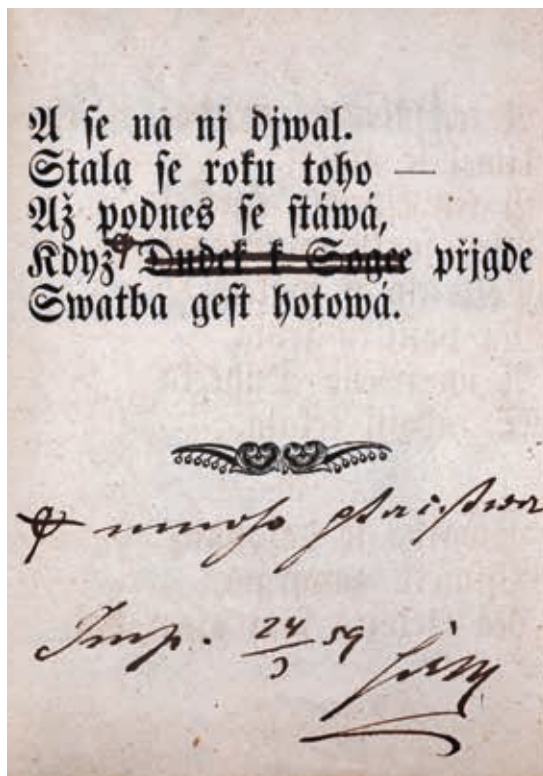 A se na nj djwal.
Stala se roku toho —
Až podnes se stáwá,
Když Dudek k Sogce přjgde
Swatba gest hotowá.
mnoho ptaistwa
Imp. 24/3 59